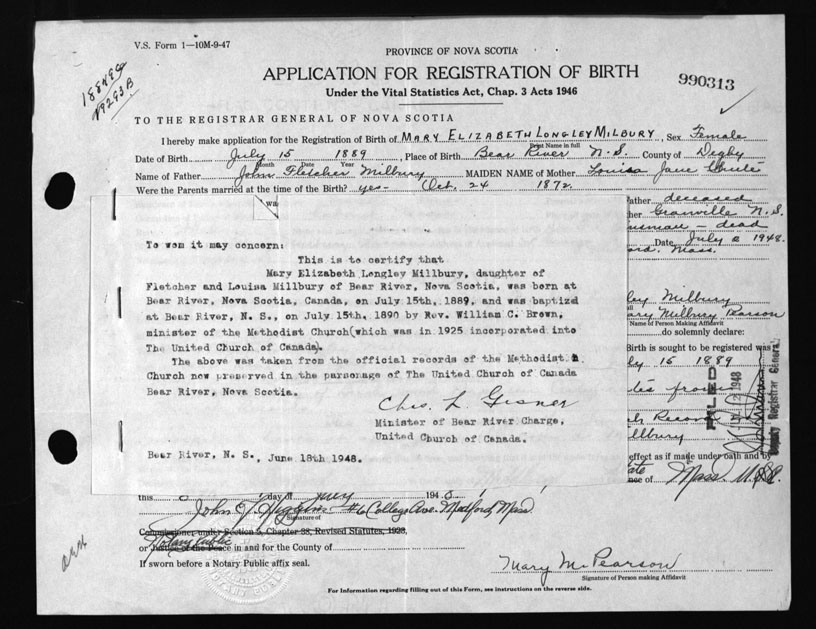 V.S. Form 1—10M-9-47
PROVINCE OF NOVA SCOTIA
APPLICATION FOR REGISTRATION OF BIRTH
Under the Vital Statistics Act, Chap. 3 Acts 1946
990313
TO THE REGISTRAR GENERAL OF NOVA SCOTIA
I hereby make application for the Registration of Birth of MARY ELIZABETH LONGLEY MILBURY, Sex Female
Print Name in full
Date of Birth July 15 1889, Place of Birth Bear River N.S. County of Digby
Month Date Year
Name of Father John Fletcher Milbury MAIDEN NAME of Mother Louisa Jane
Were the Parents married at the time of the Birth? yes- Oct. 24 1872.
wa
Father deceased
her Granville N.S.
dead
Date July 2 1948.
Mass.
To wom it may concern:
This is to certify that
Mary Elizabeth Longley Millbury, daughter of
Fletcher and Louisa Millbury of Bear River, Nova Scotia, was born at
Bear River, Nova Scotia, Canada, on July 15th, 1889, and was baptized
at Bear River, N. S., on July 15th, 1890 by Rev. William C. Brown,
minister of the Methodist Church(which was in 1925 incorporated into
The United Church of Canada).
The above was taken from the official records of the Methodist
Church now preserved in the parsonage of The United Church of Canada
Bear River, Nova Scotia.
Chas. L. Gesner
Minister of Bear River Charge,
United Church of Canada.
Bear River, N. S., June 18th 1948.
ley Milbury
ary Milbury Pearson
Name of Person Making Affidavit
do solemnly declare:
Birth is sought to be registered was
ly 15 1889
from
Record
lbury
effect as if made under oath and by
nce of Mass. U.S.A.
FILED
JUL 12 1948
Deputy Registrar General
this day of July 1948
John J. Higgins #6 College Ave. Medford, Mass
Signature of
Commissioner under Section 5, Chapter 38, Revised Statutes, 1923,
Notary Public
or Justice of the Peace in and for the County of
If sworn before a Notary Public affix seal.
Mary M. Pearson
Signature of Person making Affidavit
For Information regarding filling out of this Form, see instructions on the reverse side.